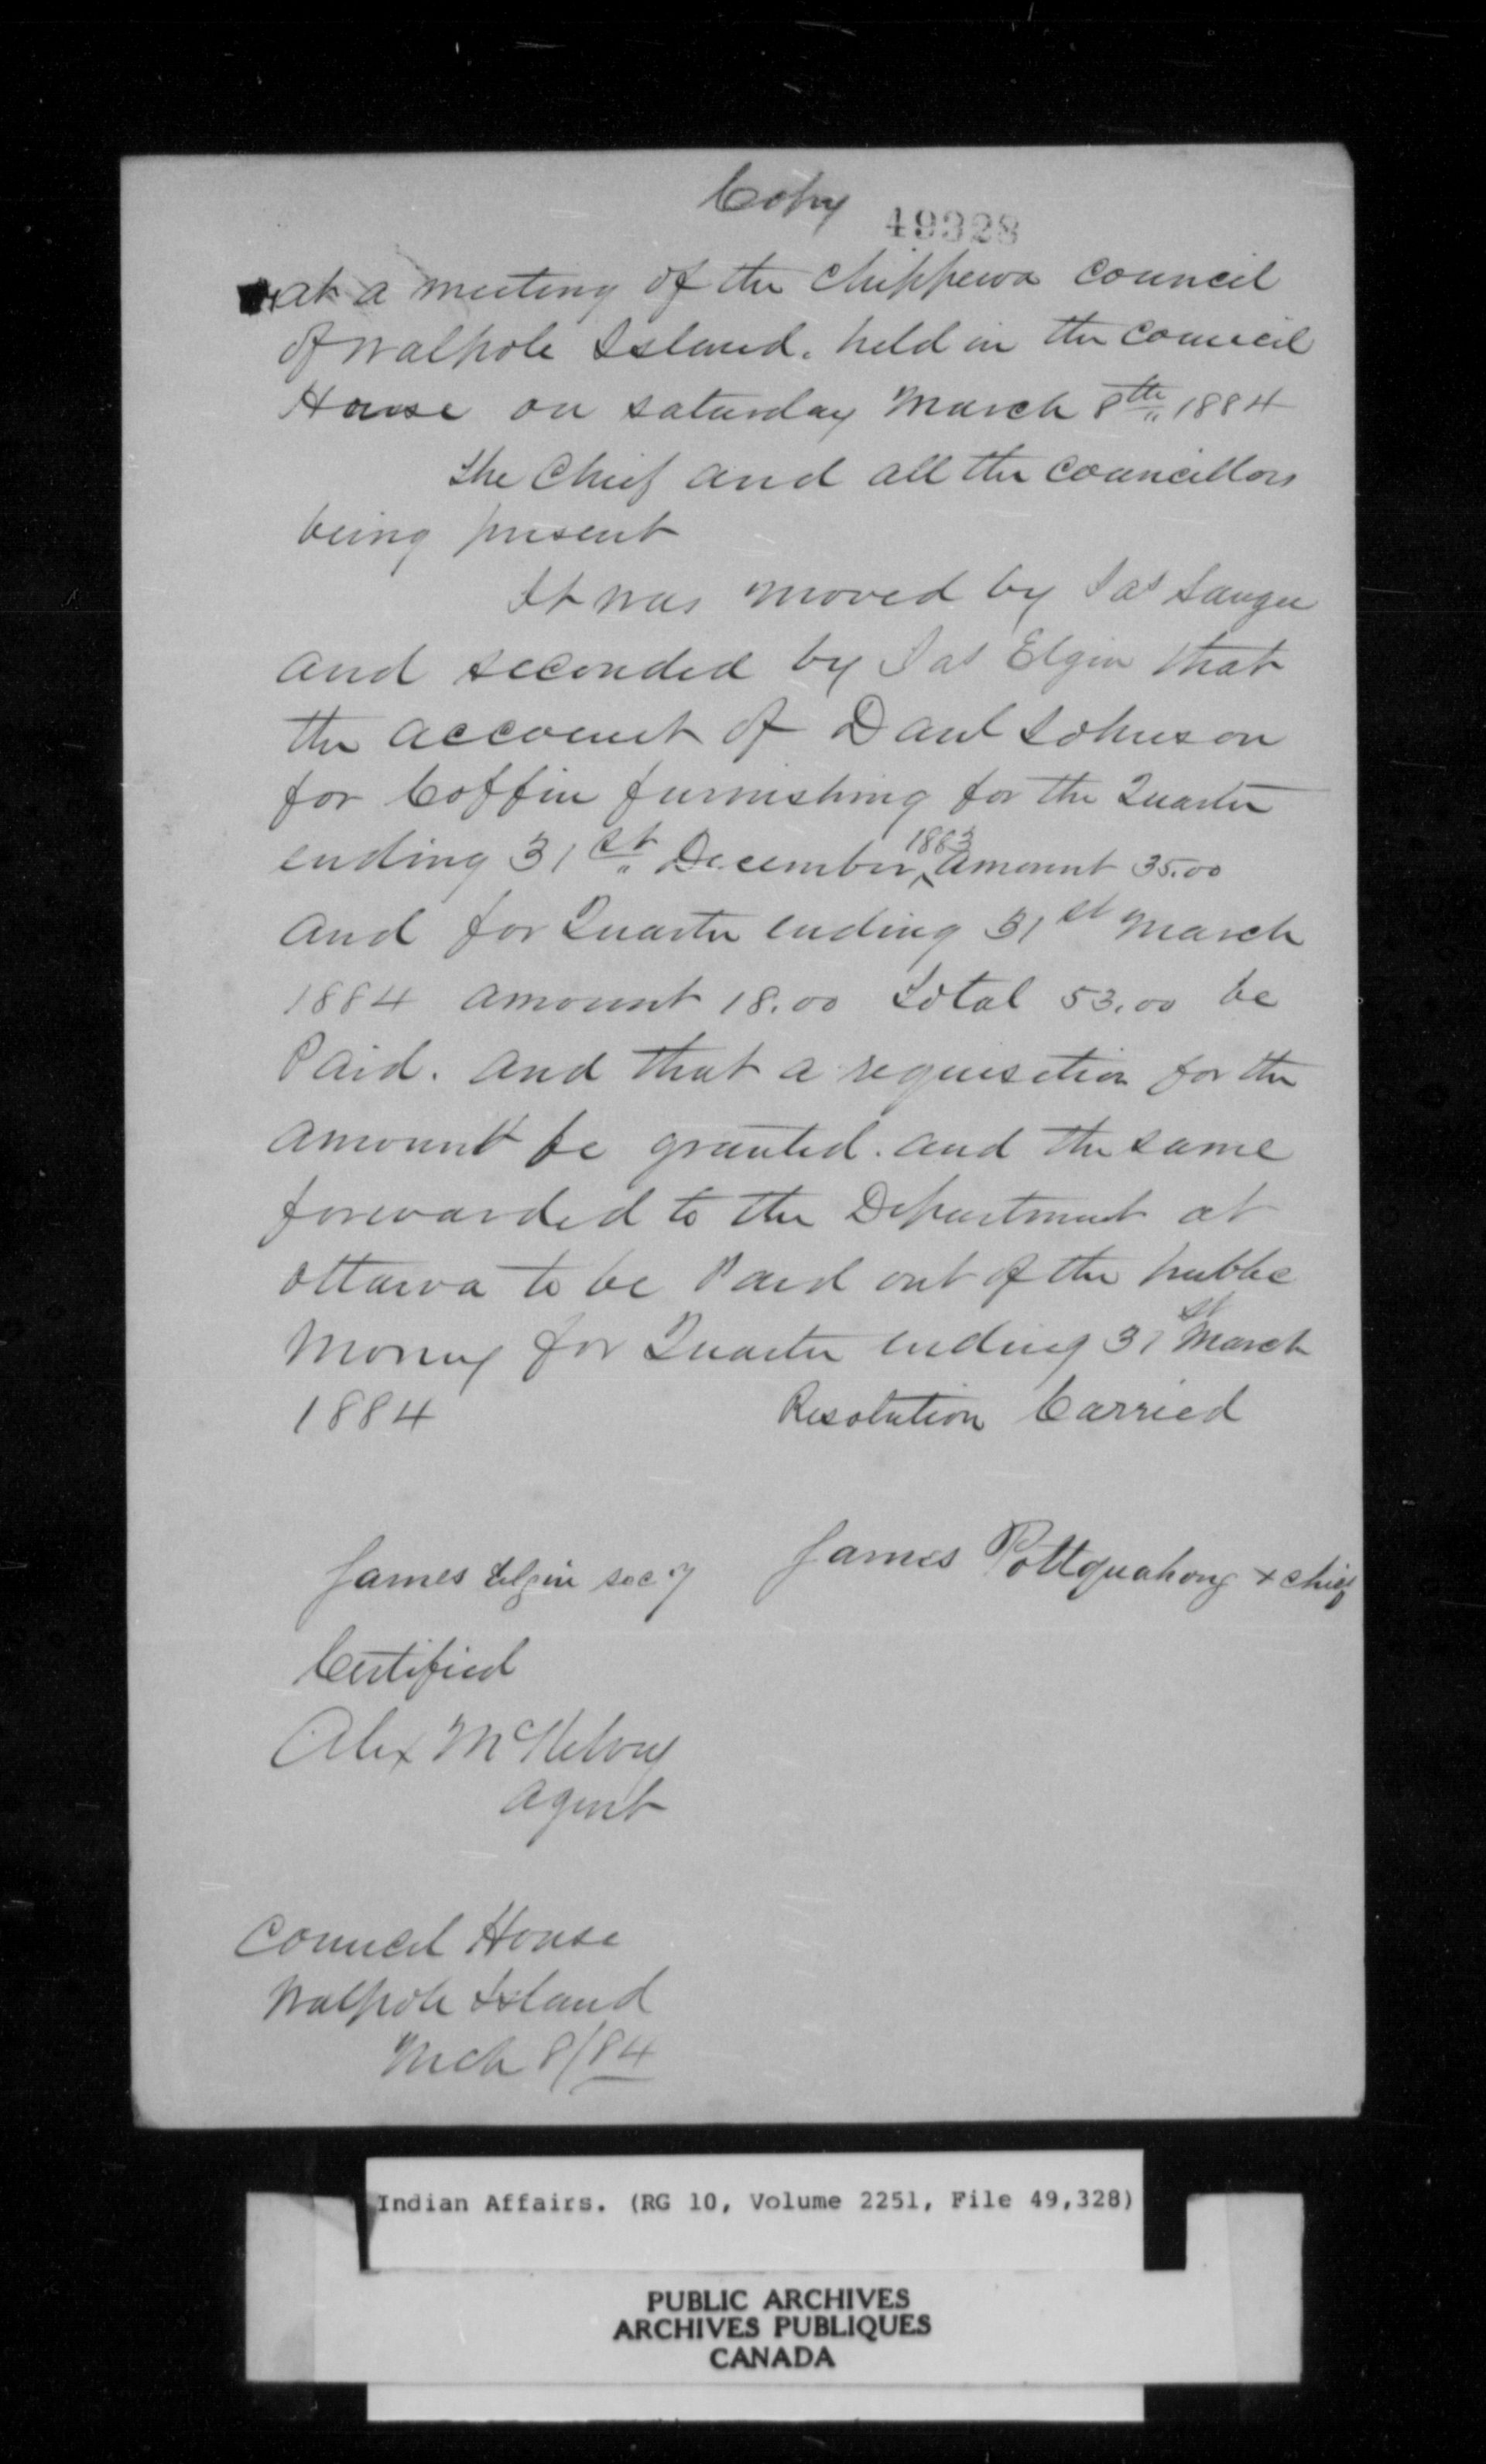 Copy
49328
at a meeting of the Chippewa Council
of Walpole Island. held in the Council
House on Saturday March 8th 1884
The Chief and all the Councillors
being present
It was moved by Jas Sangee
and seconded by Jas Elgin that
the account of Danl Johnson
for Coffin furnishing for the Quarter
ending 31st December 1883 amount 35.00
and for Quarter ending 31st March
1884 amount 18.00 Total 53.00 be
Paid. and that a requisition for the
amount be granted. and the same
forewarded to the Department at
Ottawa to be Paid out of the public
Money for Quarter ending 31st March
1884 Resolution Carried
James Elgin secy James Pottquahong + chief
Certified
Alex McKelvey
Agent
Council House
Walpole Island
Mch 8/84
Indian Affairs. (RG 10, Volume 2251, File 49,328)
PUBLIC ARCHIVES
ARCHIVES PUBLIQUES
CANADA